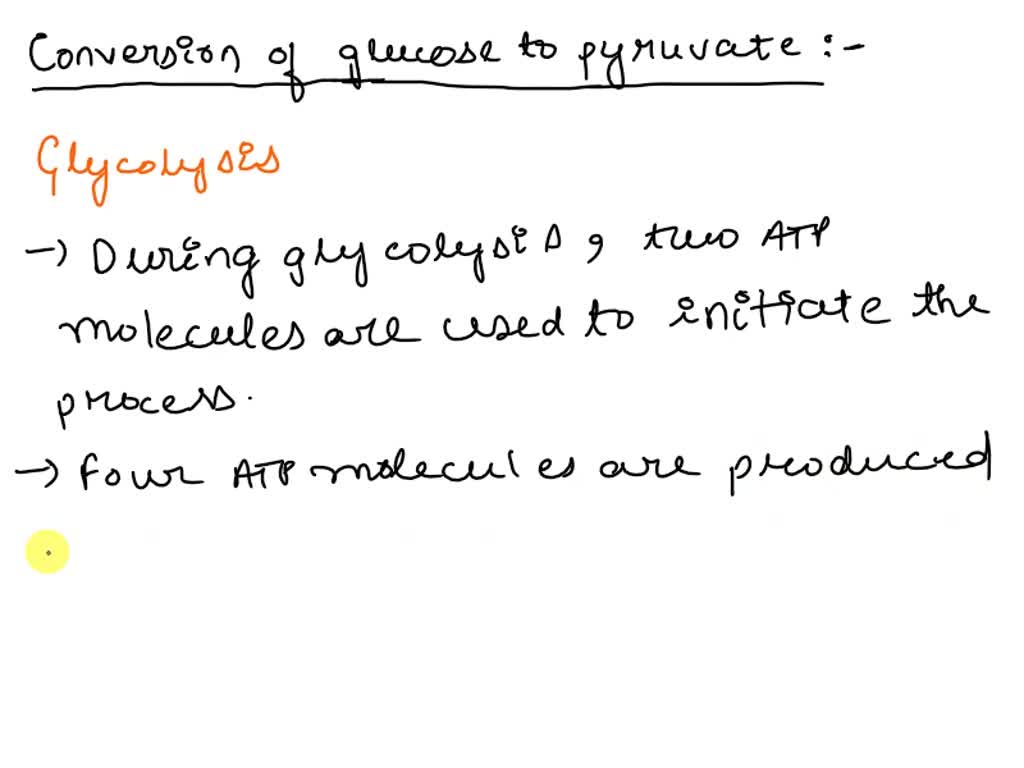 Conversion of glucose to pyruvate :-
Glycolysis
→ During glycolysis, two ATP
molecules are used to initiate the
process.
→ Four ATP molecules are produced